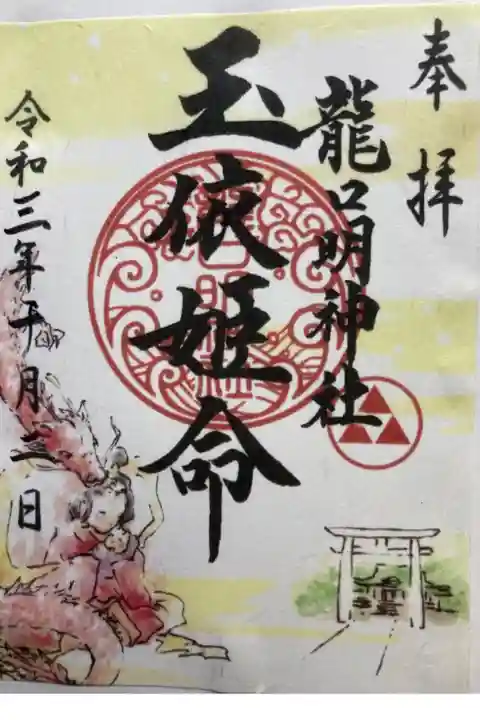 奉拝
龍口明神社
玉依姫命
令和三年十一月二日